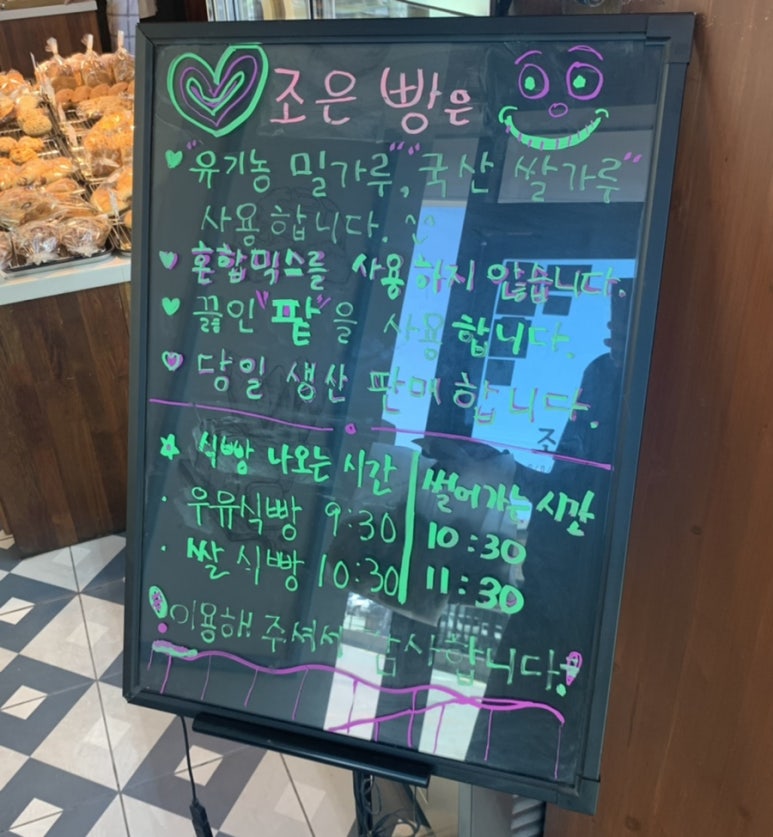 조은 빵은
"유기농 밀가루", "국산 쌀가루"
사용합니다.
혼합믹스를 사용하지 않습니다.
끓인 "팥"을 사용합니다.
당일 생산 판매합니다.
식빵 나오는 시간 썰어가는 시간
· 우유식빵 9:30 10:30
· 쌀 식빵 10:30 11:30
이용해 주셔서 감사합니다!